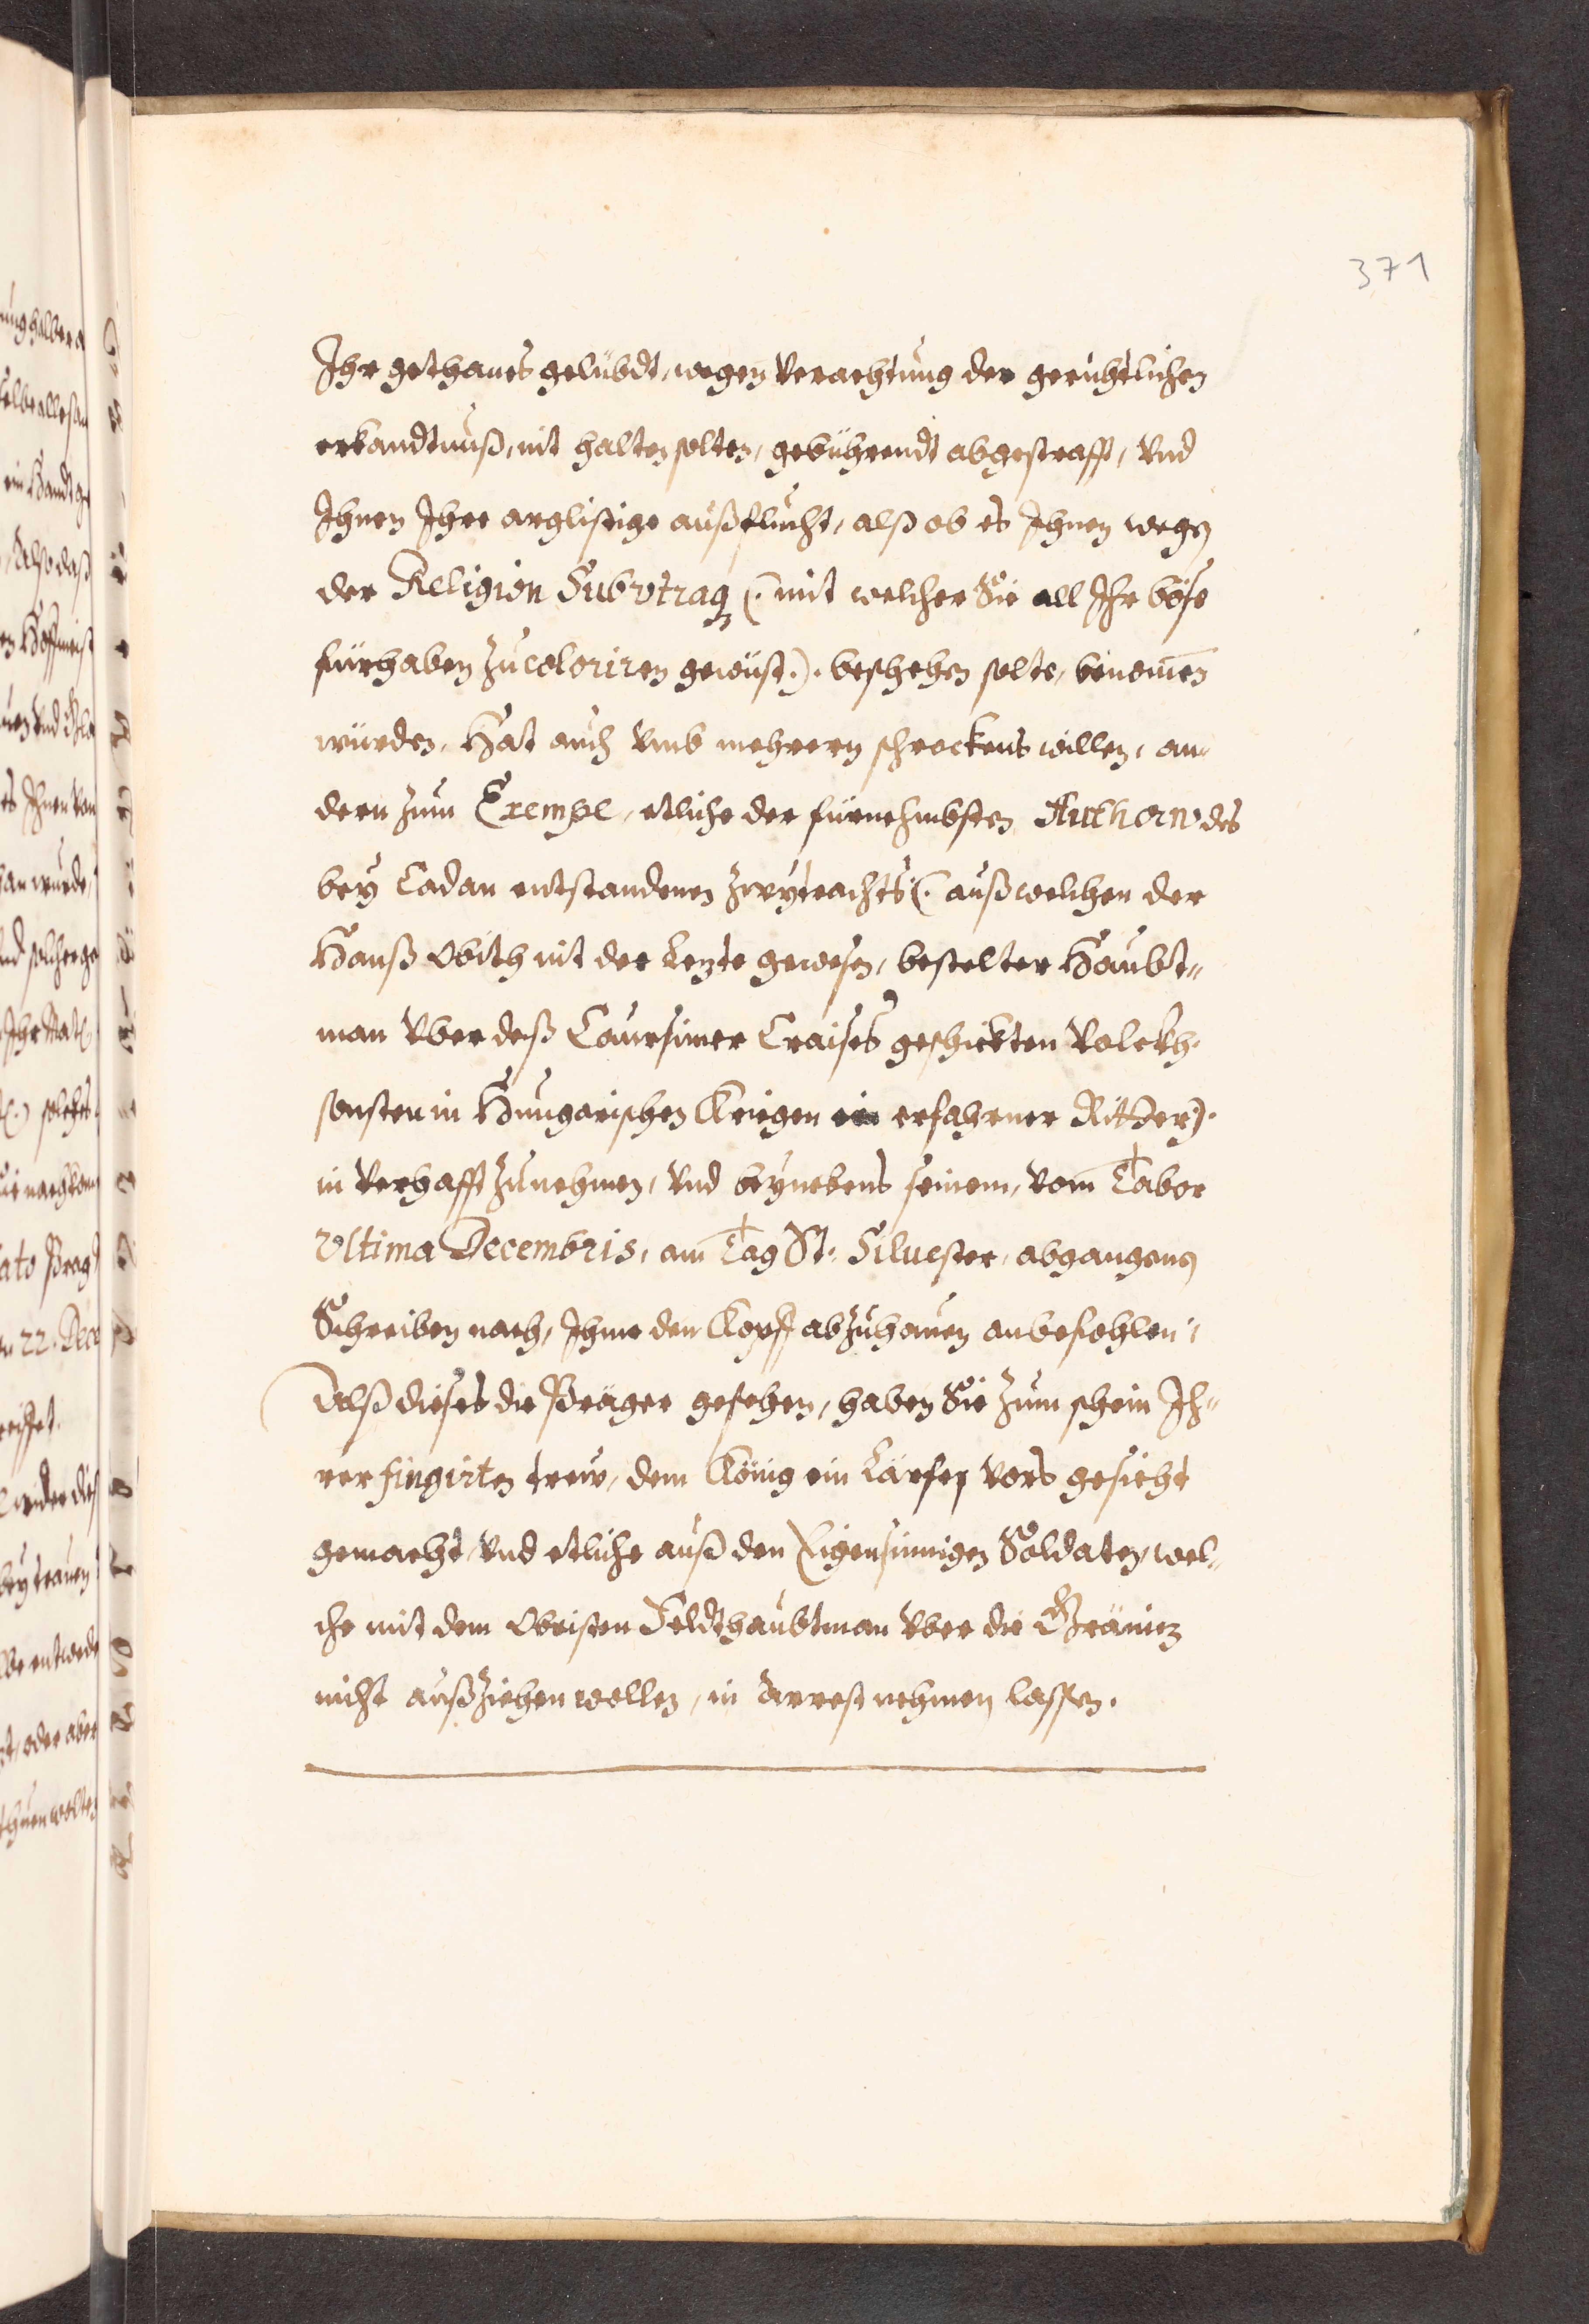 371
Ihr gethanes gelübdt, wegen verachtung der gerichtlichen
erkandtnuß, nit halten solten, gebührendt abgestrafft, vnd
Ihnen Ihre arglistige außflucht, alß ob es Ihnen wegen
der Religion Subvtraq (: mit welcher Sie all Ihr böse
fürhaben zu coloriren gewüst:). beschehen solte, benom̄en
würden, Hat auch vmb mehrern schreckens willen, an-
dern zum Exempel, etliche der fürnehmbsten Authorn des
bey Cadan entstandenen zwytrachts (: auß welchen der
Hanß Obith nit der Lezte gewesen, bestelter Haubt-
man vber deß Caursimer Craises geschickten Volckh,
sonsten in Hungarischen Kriegen ein erfahrner Ritter).
in verhafft zunehmen, vnd beynebens seinem, vom Tabor
Vltima Decembris, am Tag St. Siluester, abgangenen
Schreiben nach, Ihme den Kopff abzuhauen anbefohlen,
Alß dieses die Präger gesehen, haben Sie zum schein Ih-
rer fingirten trew, dem König ein Lärfen vors gesicht
gemacht, vnd etliche auß den Eigensinnigen Soldaten, wel-
che mit dem Obristen Feldthaubtman vber die Gräniz
nicht außziehen wollen, in Arrest nehmen lassen.